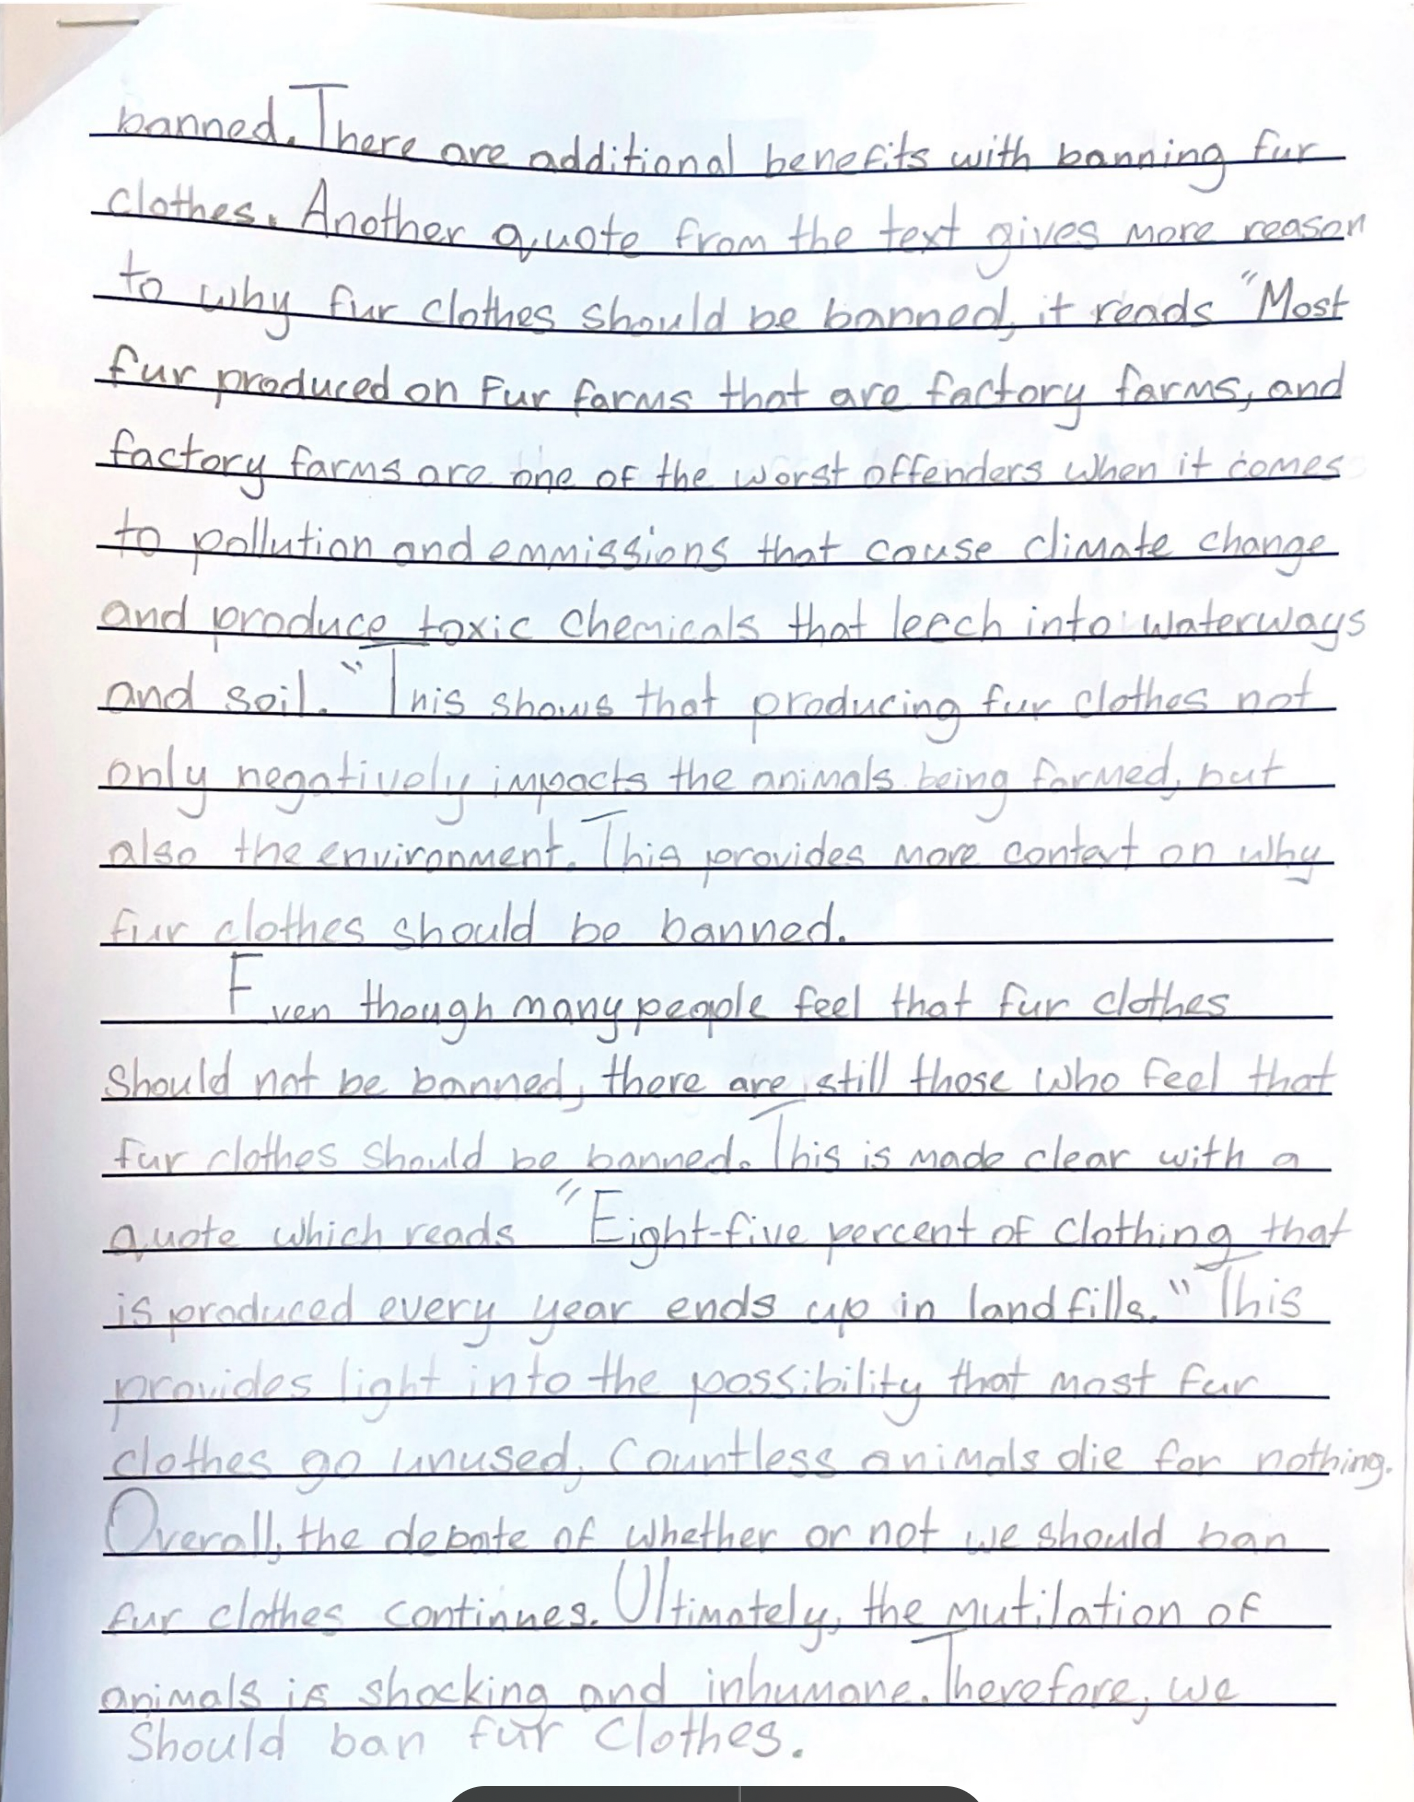 banned. There are additional benefits with banning fur
clothes. Another quote from the text gives more reason
to why fur clothes should be banned, it reads "Most
fur produced on fur farms that are factory farms, and
factory farms are one of the worst offenders when it comes
to pollution and emmissions that cause climate change
and produce toxic chemicals that leech into waterways
and soil." This shows that producing fur clothes not
only negatively impacts the animals being farmed, but
also the environment. This provides more context on why
fur clothes should be banned.
Even though many people feel that fur clothes
should not be banned, there are still those who feel that
fur clothes should be banned. This is made clear with a
quote which reads "Eight-five percent of clothing that
is produced every year ends up in landfills." This
provides light into the possibility that most fur
clothes go unused, Countless animals die for nothing.
Overall, the debate of whether or not we should ban
fur clothes continues. Ultimately, the mutilation of
animals is shocking and inhumane. Therefore, we
should ban fur clothes.